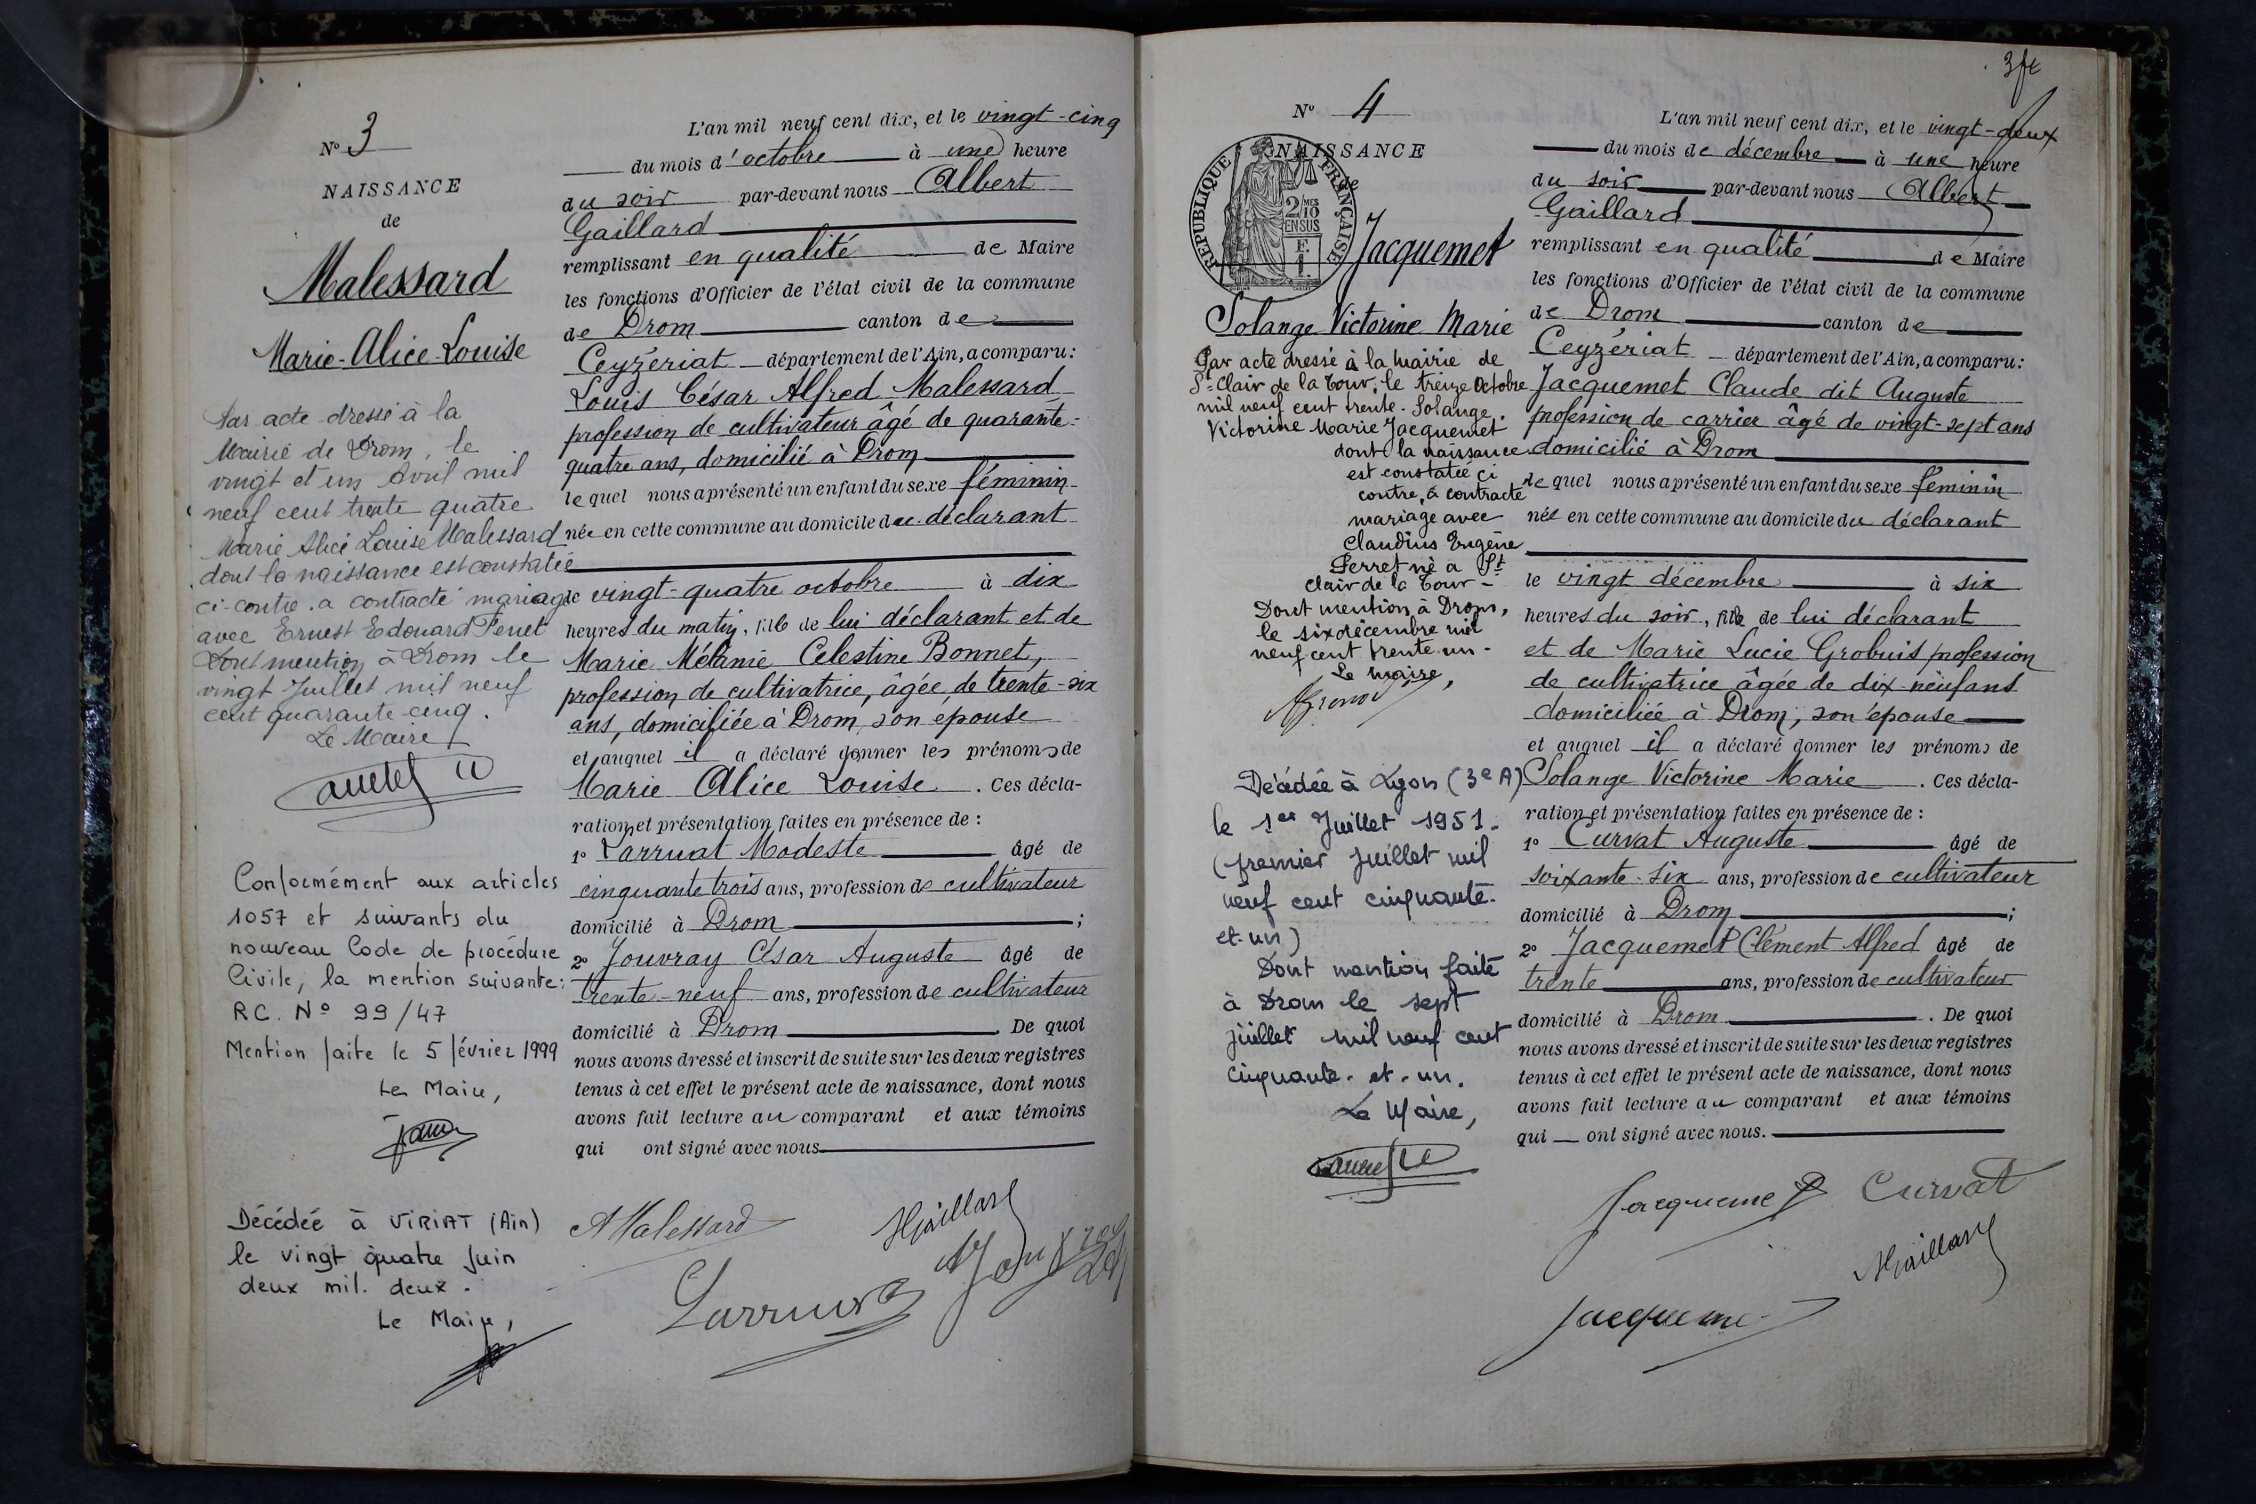 N° 3
NAISSANCE
de
Malessard
Marie-Alice-Louise
Par acte dressé à la
Mairie de Drom, le
vingt et un Avril mil
neuf cent trente quatre
Marie Alice Louise Malessard
dont la naissance est constatée
ci-contre. a contracté mariage
avec Ernest Edouard Fenet
Dont mention à Drom le
vingt Juillet mil neuf
cent quarante cinq.
Le Maire
Conformément aux articles
1057 et suivants du
nouveau Code de procédure
Civile, la mention suivante:
RC. N° 99/47
Mention faite le 5 février 1999
Le Maire,
Décédée à VIRIAT (Ain)
le vingt quatre Juin
deux mil. deux.
Le Maire,
L'an mil neuf cent dix, et le vingt-cinq
du mois d'octobre à une heure
du soir par-devant nous Albert
Gaillard
remplissant en qualité de Maire
les fonctions d'Officier de l'état civil de la commune
de Drom canton de
Ceyzériat département de l'Ain, a comparu:
Louis César Alfred Malessard
profession de cultivateur âgé de quarante-
quatre ans, domicilié à Drom
lequel nous a présenté un enfant du sexe féminin
née en cette commune au domicile du déclarant
le vingt-quatre octobre à dix
heures du matin, fille de lui déclarant et de
Marie Mélanie Celestine Bonnet,
profession de cultivatrice, âgée de trente-six
ans, domiciliée à Drom, son épouse
et auquel il a déclaré donner les prénoms de
Marie Alice Louise. Ces décla-
ration et présentation faites en présence de:
1° Larruat Modeste âgé de
cinquante trois ans, profession de cultivateur
domicilié à Drom;
2° Jouvray César Auguste âgé de
trente-neuf ans, profession de cultivateur
domicilié à Drom. De quoi
nous avons dressé et inscrit de suite sur les deux registres
tenus à cet effet le présent acte de naissance, dont nous
avons fait lecture au comparant et aux témoins
qui ont signé avec nous
AMalessard
AGaillard
Larruat
3 fe
N° 4
NAISSANCE
de
REPUBLIQUE FRANÇAISE
2/10 MES
EN SUS
F.
1.
Jacquemet
Solange Victorine Marie
Par acte dressé à la mairie de
St-Clair de la Tour, le treize Octobre
mil neuf cent trente. Solange.
Victorine Marie Jacquemet
dont la naissance
est constatée ci
contre, a contracté
mariage avec
Claudius Eugène
Ferret né à St
Clair de la Tour -
Dont mention à Drom,
le six décembre mil
neuf cent trente un -
Le Maire,
Décédée à Lyon (3e A)
le 1er Juillet 1951.
(premier juillet mil
neuf cent cinquante-
et-un)
Dont mention faite
à Drom le sept
juillet mil neuf cent
cinquante-et-un.
Le Maire,
L'an mil neuf cent dix, et le vingt-deux
du mois de décembre à une heure
du soir par-devant nous Albert
Gaillard
remplissant en qualité de Maire
les fonctions d'Officier de l'état civil de la commune
de Drom canton de
Ceyzériat département de l'Ain, a comparu:
Jacquemet Claude dit Auguste
profession de carrier âgé de vingt-sept ans
domicilié à Drom
lequel nous a présenté un enfant du sexe féminin
née en cette commune au domicile du déclarant
le vingt décembre à six
heures du soir, fille de lui déclarant
et de Marie Lucie Grobuis profession
de cultivatrice âgée de dix-neuf ans
domiciliée à Drom, son épouse
et auquel il a déclaré donner les prénoms de
Solange Victorine Marie. Ces décla-
ration et présentation faites en présence de:
1° Curvat Auguste âgé de
soixante-six ans, profession de cultivateur
domicilié à Drom;
2° Jacquemet Clément Alfred âgé de
trente ans, profession de cultivateur
domicilié à Drom. De quoi
nous avons dressé et inscrit de suite sur les deux registres
tenus à cet effet le présent acte de naissance, dont nous
avons fait lecture au comparant et aux témoins
qui ont signé avec nous.
Jacquemet Curvat
AGaillard
Jacquemet